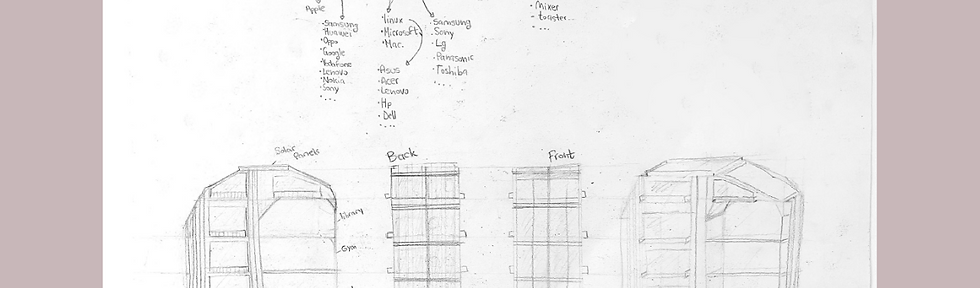 Apple
·Samsung
·Huawei
·Oppo
·Google
·Vodafone
·Lenovo
·Nokia
·Sony
· ...
·linux
·Microsoft
·Mac.
·Asus
·Acer
·Lenovo
·Hp
·Dell
· ...
·Samsung
·Sony
·Lg
·Panasonic
·Toshiba
· ...
·Mixer
- toaster...
- ...
Solar
Panels
Back
Front
Library
Gym